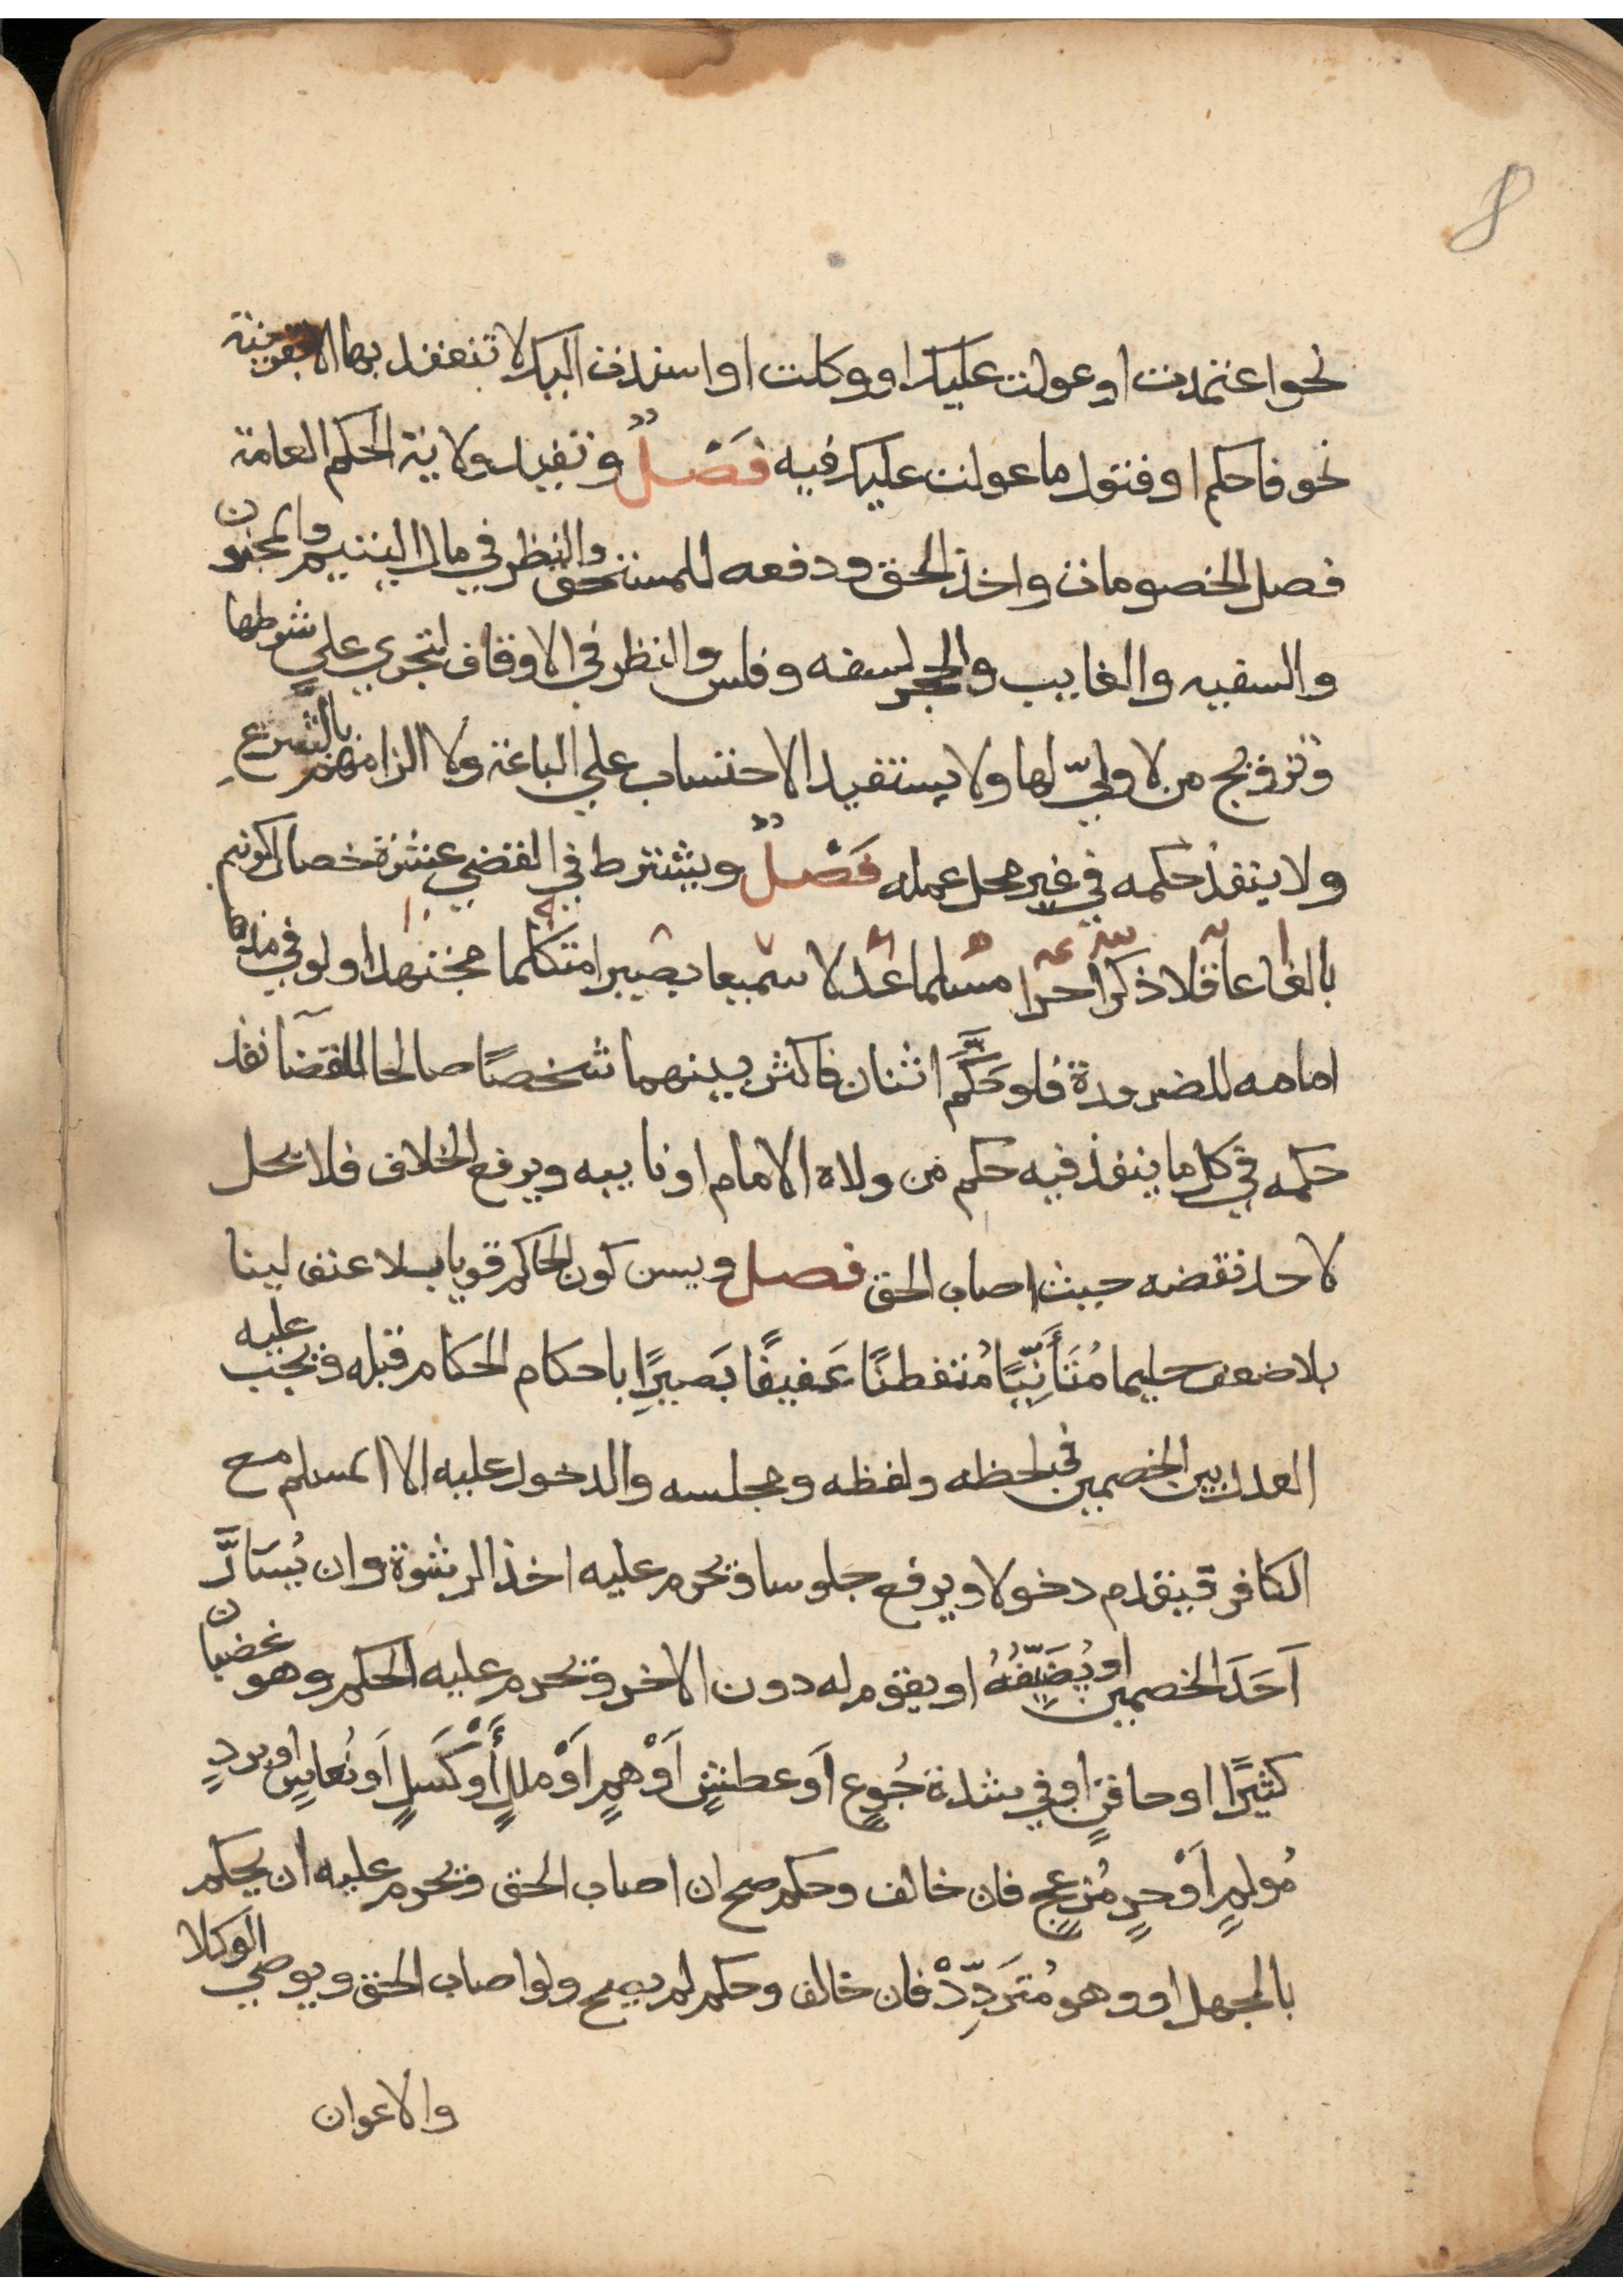 8
نحو اعتمدت او عولت عليك او وكلت او اسندت اليك لا تنعقد بها الا بقرينة
نحو فاحكم او فتول ما عولت عليك فيه فَصْلٌ وتفيد ولاية الحكم العامة
فصل الخصومات واخذ الحق ودفعه للمستحق والنظر في مال اليتيم والمجنون
والسفيه والغايب والحجر لسفه وفلس والنظر في الاوقاف لتجري علي شرطها
وتزويج من لا وليّ لها ولا يستفيد الاحتساب علي الباعة ولا الزامهم بالشرع
ولا ينفذ حكمه في غير محل عمله فَصْلٌ ويشترط في القضي عشرة خصال كونه
بالغا عاقلا ذكرا حرا مسلما عدلا سميعا بصيرا متكلما مجتهدا ولو في مذهب
امامه للضرورة فلو حَكَّمَ اثنان فاكثر بينهما شخصًا صالحا للقضا نفذ
حكمه في كل ما ينفذ فيه حكم من ولاه الامام او نايبه ويرفع الخلاف فلا يحل
لاحد نقضه حيث اصاب الحق فصل ويسن كون الحاكم قويا بلا عنف لينا
بلا ضعف حليما مُتَأَنِّيًا مُتفطنًا عَفيفًا بَصيرًا باحكام الحكام قبله ويجب عليه
العدل بين الخصمين في لحظه ولفظه ومجلسه والدخول عليه الا المسلم مع
الكافر فيقدم دخولا ويرفع جلوسا ويحرم عليه اخذ الرشوة وان يُسَارَّ
اَحَدَ الخصمين او يُضَيِّفُهُ او يقوم له دون الاخر ويحرم عليه الحكم وهو غضبان
كثيرًا او حاقنٍ او في شدة جُوعٍ اَو عطشٍ اَوْ همٍ اَوْ مللٍ أَوْ كَسَلٍ اَو نُعاسٍ او بردٍ
مُولمٍ اَوْ حرٍ مُزعجٍ فان خالف وحكم صح ان اصاب الحق ويحرم عليه ان يحكم
بالجهل او وهو مُترَدِّدْ فان خالف وحكم لم يصح ولو اصاب الحق ويوصي الوكلا
والاعوان